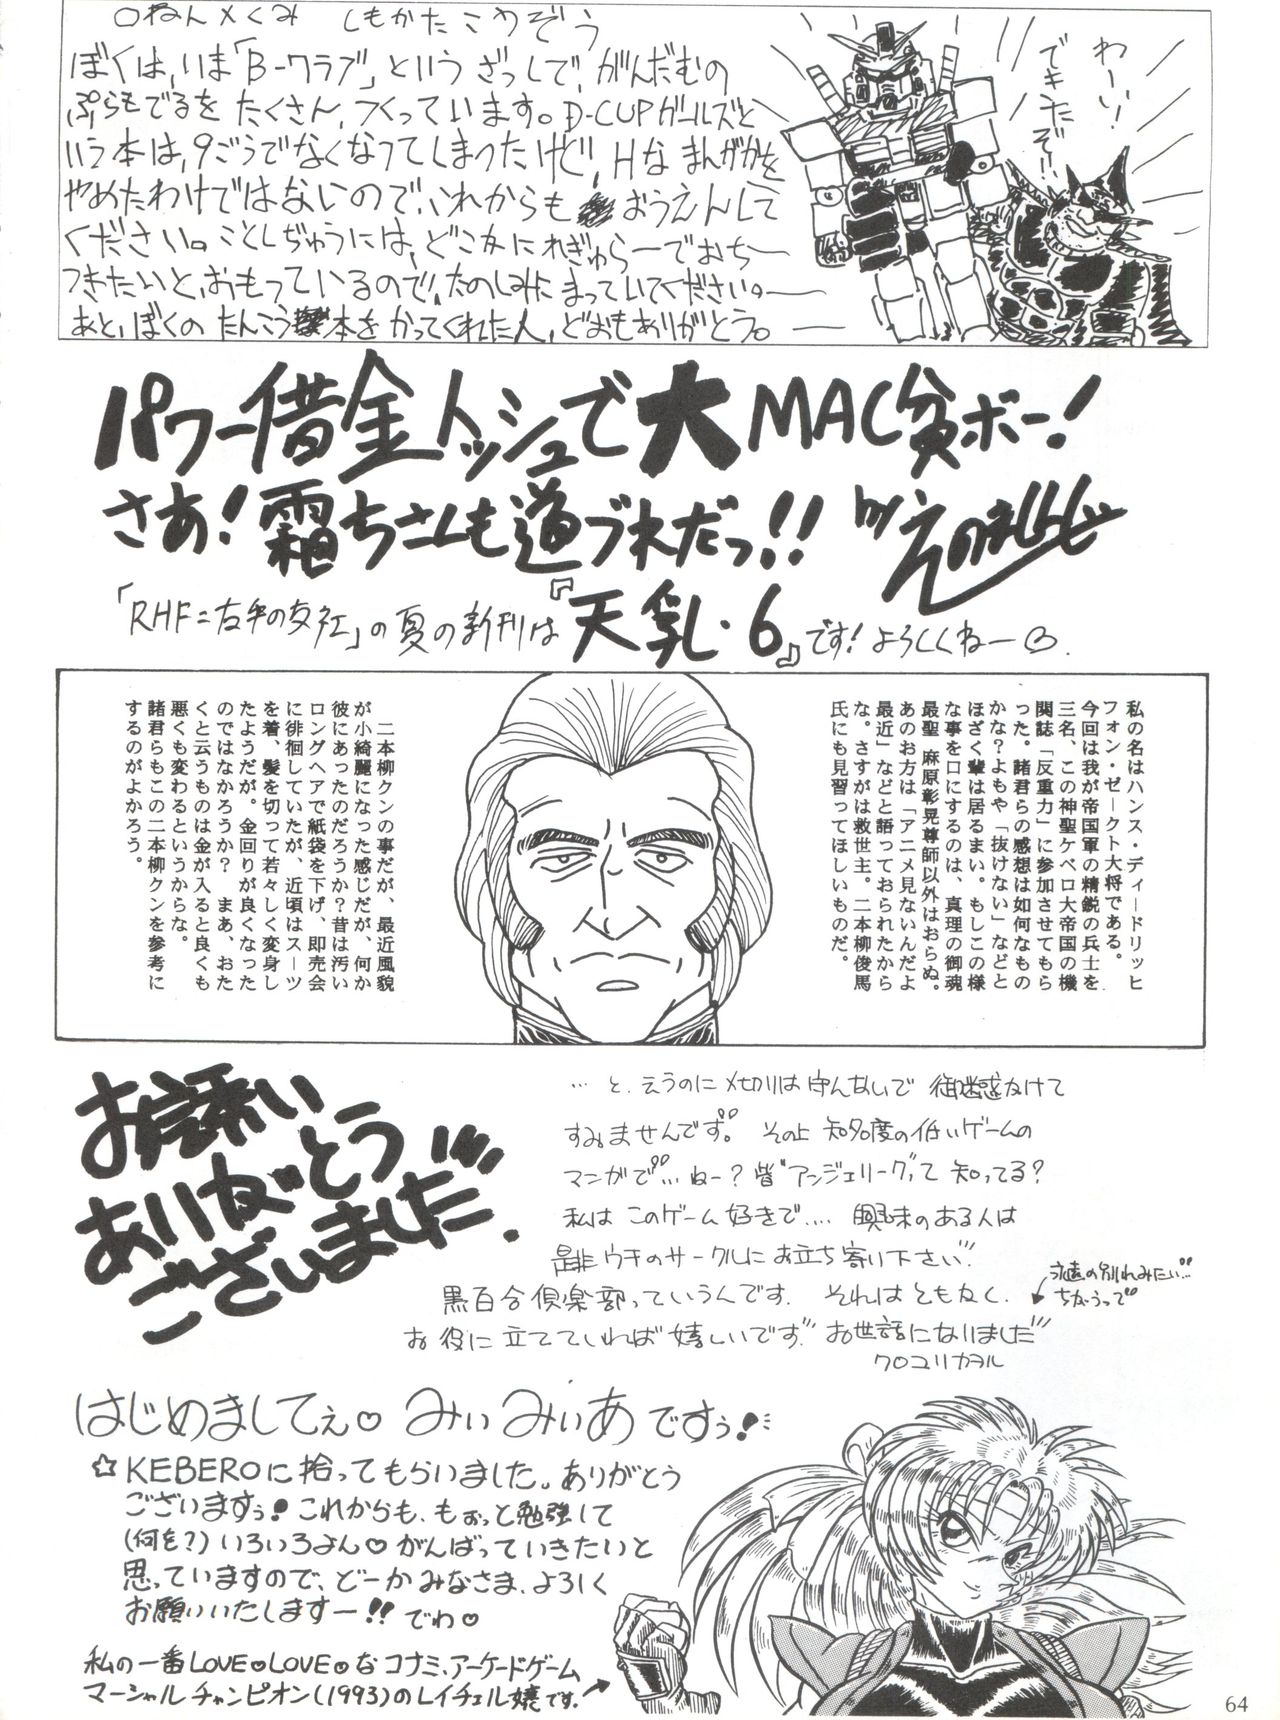 ○ねん×くみ　しもかたこうぞう
ぼくは,いま「B-クラブ」というざっしで,がんだむの
ぷらもでるをたくさん,つくっています。D-CUPガールズと
いう本は,9ごうでなくなってしまったけど,Hなまんがかを
やめたわけではないので,これからもおうえんして
ください。ことしぢゅうには,どこかにれぎゅらーでおち
つきたいと,おもっているので,たのしみにまっていてください。
あと,ぼくのたんこう本をかってくれた人,どおもありがとう。
わーい!
できたぞ!!
パワー借金トッシュで大MAC貧ボー!
さあ!霜ちさんも道ヅれだっ!!
by
「RHF=右手の友社」の夏の新刊は『天乳・6』です!よろしくねー
私の名はハンス・ディードリッヒ
フォン・ゼークト大将である。
今回は我が帝国軍の精鋭の兵士を
三名、この神聖ケベロ大帝国の機
関誌「反重力」に参加させてもら
った。諸君らの感想は如何なもの
かな?よもや「抜けない」などと
ほざく輩は居るまい。もしこの様
な事を口にするのは、真理の御魂
最聖 麻原彰晃尊師以外はおらぬ。
あのお方は「アニメ見ないんだよ
最近」などと語っておられたから
な。さすがは救世主。二本柳俊馬
氏にも見習ってほしいものだ。
二本柳クンの事だが、最近風貌
が小綺麗になった感じだが、何か
彼にあったのだろうか?昔は汚い
ロングヘアで紙袋を下げ、即売会
に徘徊していたが、近頃はスーツ
を着、髪を切って若々しく変身し
たようだが。金回りが良くなった
のではなかろうか?まあ、おた
くと云うものは金が入ると良くも
悪くも変わるというからな。
諸君らもこの二本柳クンを参考に
するのがよかろう。
お誘い
ありがとう
ございました.
…と、えうのに〆切りは守んないで 御迷惑かけて
すみませんです。その上 知名度の低いゲームの
マンガで…ねー?皆"アンジェリーク"って 知ってる?
私は このゲーム好きで…. 興味のある人は
是非ウチのサークルにお立ち寄り下さい
黒百合倶楽部っていうんです. それはともかく.
永遠の別れみたい…
ちがうって
お役に立てていれば嬉しいです お世話になりました
クロユリカヲル
はじめましてぇ♡ みぃみぃあですぅ!
☆KEBEROに拾ってもらいました。ありがとう
ございますぅ!これからも、もぉっと勉強して
(何を?)いろいろよん♡がんばっていきたいと
思っていますので、どーかみなさま、よろしく
お願いいたしますー!!でわ♡
私の一番LOVE♡LOVE♡なコナミ、アーケードゲーム
マーシャルチャンピオン(1993)のレイチェル嬢です。
64